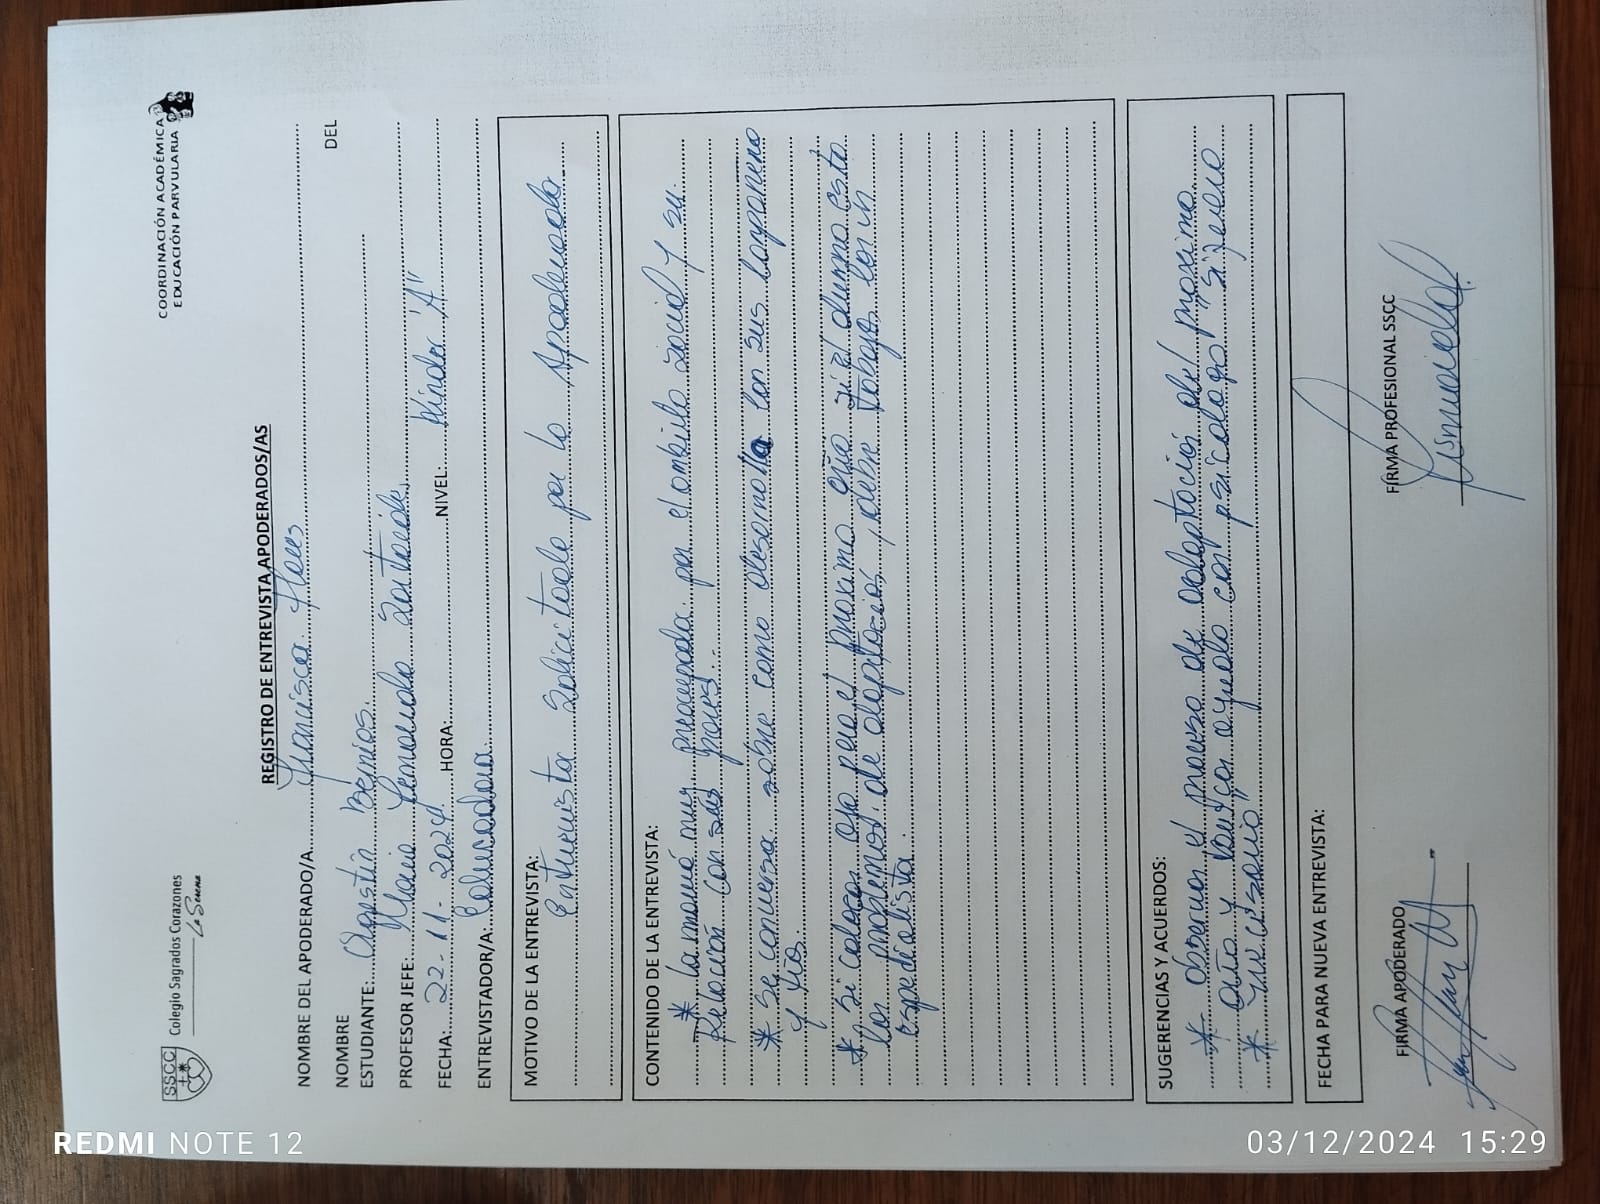 SSCC
Colegio Sagrados Corazones
La Serena
COORDINACIÓN ACADÉMICA
EDUCACIÓN PARVULARIA
REGISTRO DE ENTREVISTA APODERADOS/AS
NOMBRE DEL APODERADO/A Francisca Flores
NOMBRE DEL
ESTUDIANTE: Agustín Berrios
PROFESOR JEFE: María Fernanda
FECHA: 22-11-2024 HORA: NIVEL: Kinder "A"
ENTREVISTADOR/A: Educadora
MOTIVO DE LA ENTREVISTA:
Entrevista solicitada por la Apoderada
CONTENIDO DE LA ENTREVISTA:
* La mamá muy preocupada por el ambito social y su
Relación con sus pares.
* se conversa sobre como desarrolla con sus compañero
y tíos.
* si colocar ojo para el proximo año si el alumno esta
los problemas de adaptación, debe trabajo con un
especialista.
SUGERENCIAS Y ACUERDOS:
* observar el proceso de adaptación del proximo
año y buscar ayuda con psicologo "si fuera
* necesario"
FECHA PARA NUEVA ENTREVISTA:
FIRMA APODERADO
FIRMA PROFESIONAL SSCC
REDMI NOTE 12
03/12/2024 15:29